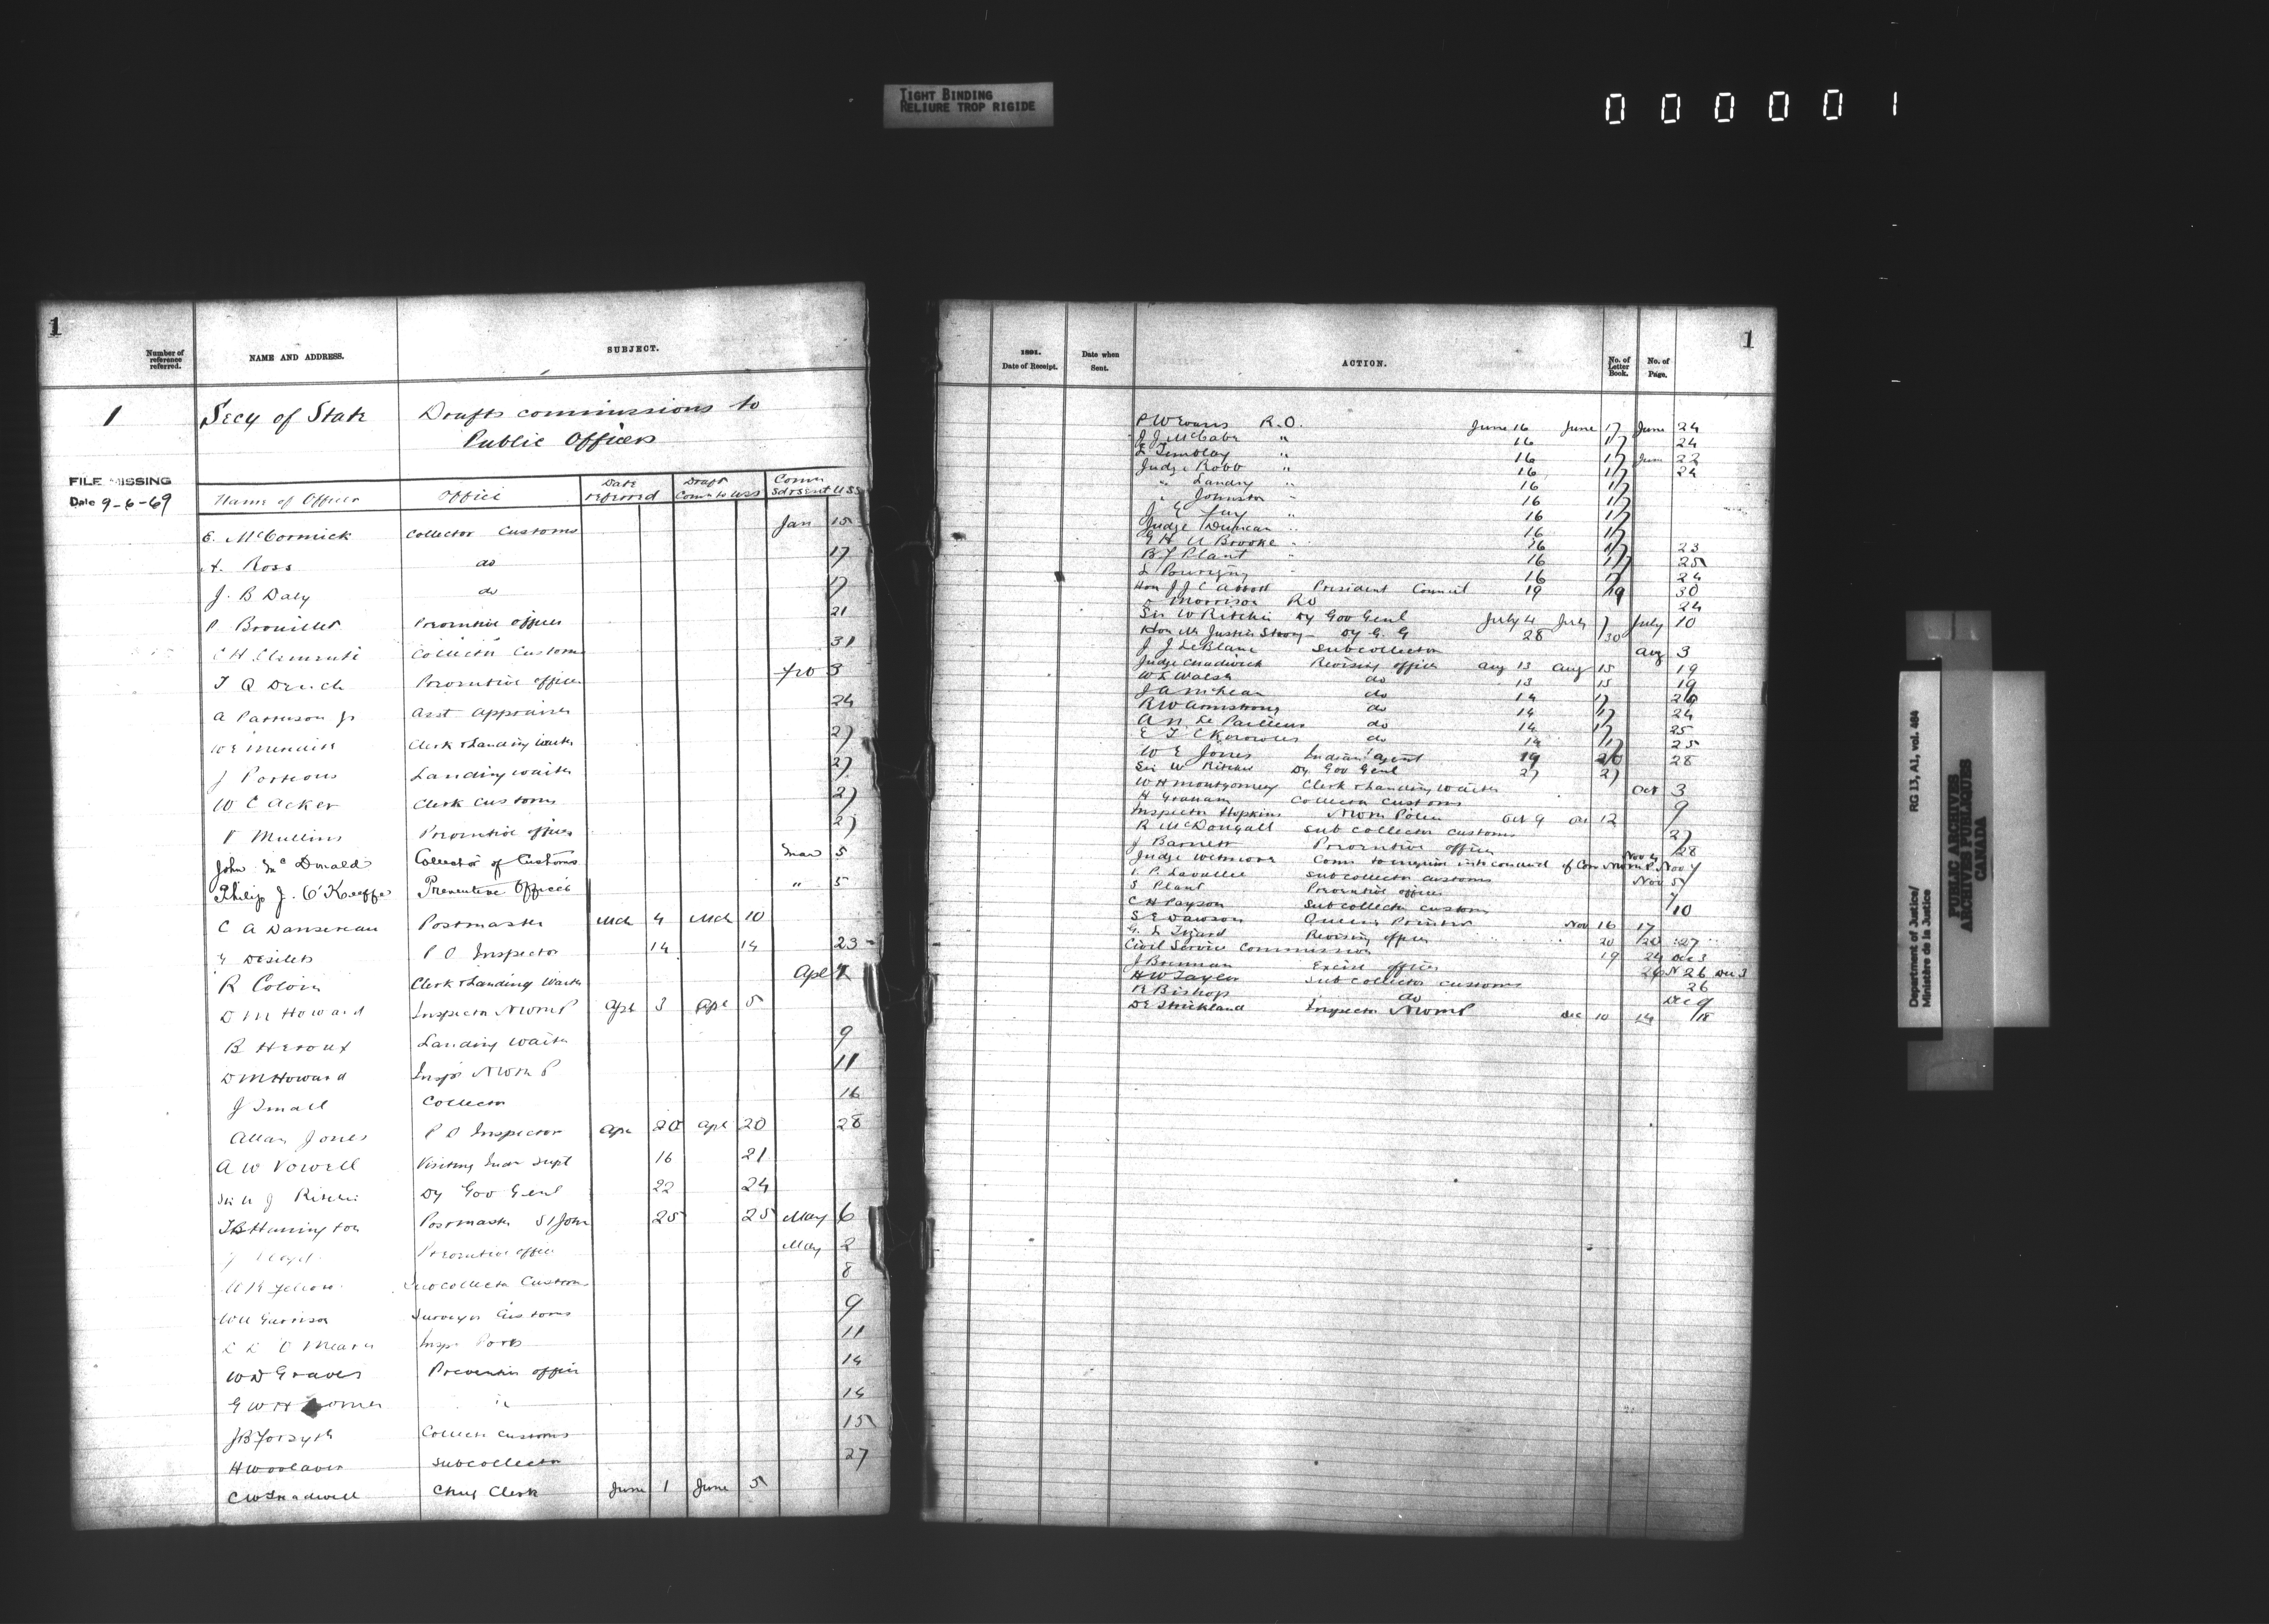 TIGHT BINDING
RELIURE TROP RIGIDE
0 0 0 0 0 1
1
Number of reference referred.
NAME AND ADDRESS.
SUBJECT.
1 Secy of State Drafts commissions to
Public Officers
FILE MISSING
Date 9-6-69
Name of Officer Office Date referred Draft Comn to USS Comn
E. McCormick Collector Customs Jan 15
A. Ross do 17
J. B Daly do 17
P Brouillet Preventive officer 21
C H Clements Collector Customs 31
T Q Preventive officer 3
A Patterson Jr Asst Appraiser 24
W E Clerk & Landing Waiter 27
J Porteous Landing waiter 27
W C Acker Clerk Customs 27
P Mullins Preventive officer 27
John McDonald Collector of Customs Mar 5
Philip J. O'Keeffe Preventive Officer " 5
C A Dansereau Postmaster Mch 4 Mch 10
Desilets P O Inspector 14 14 23
R Colvin Clerk & Landing Waiter Apl
D M Howard Inspector NWMP Apl 3 Apl 5
B Heroux Landing Waiter 9
D M Howard Inspr NWMP 11
J Small Collector 16
Allan Jones P O Inspector Apl 20 Apl 20 28
A W Vowell Visiting Indn Supt 16 21
Sir W J Ritchie Dy Gov Genl 22 24
Harrington Postmaster St John 25 25 May 6
Preventive officer May 2
Subcollector Customs 8
W H Garrison Surveyor Customs 9
O'Meara Inspr Ports 11
W D Graves Preventive officer 14
G W H 14
J B Forsyth Collector Customs 15
H Woolaver Subcollector 27
C W Treadwell Chief Clerk June 1 June 5
1
1891.
Date of Receipt.
Date when Sent.
ACTION.
No. of Letter Book.
No. of Page.
P W Evans R.O. June 16 June 17 June 24
J J McCabe " 16 17 24
Tremblay " 16 17 June 22
Judge Robb " 16 17 24
" Landry " 16 17
" Johnston " 16 17
J E " 16 17
Judge Duncan " 16 17
G H U Brooke " 16 17 23
B J Plant " 16 17 25
16 17 24
Hon J J C Abbott President Council 19 19 30
Morrison RO 24
Sir W Ritchie Dy Gov Genl July 4 July 7 July 10
Hon Mr Justice Strong Dy G. G 28 30
J J LeBlanc Subcollector Aug 3
Judge Chadwick Revising officer Aug 13 Aug 15 19
Walsh do 13 15 19
J A McLean do 14 17
R W Armstrong do 14 17 24
A N do 14 17 25
do 14 17 25
W E Jones Indian Agent 19 20 28
Sir W Ritchie Dy Gov Genl 27 27
W H Montgomery Clerk & Landing Waiter Oct 3
H Graham Collector Customs 9
Inspector Hopkins NWM Police Oct 9 Oct 12
R McDougall Sub collector customs 27
J Barnett Preventive officer 28
Judge Wetmore Comn to enquire into conduct of Com NWMP Nov 4 Nov 7
P. Lavallee Subcollector customs Nov 5
S Plant Preventive officer 7
C H Payson Subcollector customs 10
S E Dawson Queens Printer Nov 16 17
G. Revising officer 20 20 27
Civil Service Commission 19 24 Dec 3
J Brennan Excise officer
H W Taylor Sub collector customs 26
R Bishop do Dec 9
D E Strickland Inspector NWMP Dec 10 14 18
Department of Justice/ RG 13, A1, vol. 464
Ministère de la Justice
PUBLIC ARCHIVES
ARCHIVES PUBLIQUES
CANADA